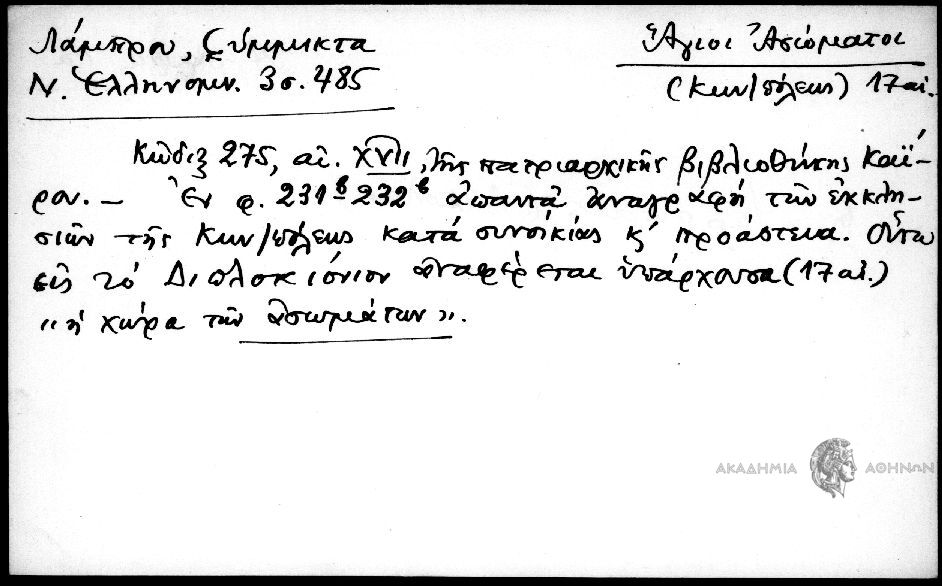 Λάμπρου, Σύμμικτα
Ν. Ἑλληνομν. 3 σ. 485
Ἅγιοι Ἀσώματοι
(Κων/πόλεως) 17 αἰ.
Κῶδιξ 275, αἰ. XVII, τῆς πατριαρχικῆς βιβλιοθήκης Καΐ-
ρου. — Ἐν φ. 231β-232β ἀπαντᾷ ἀναγραφή τῶν ἐκκλη-
σιῶν τῆς Κων/πόλεως κατά συνοικίας κ' προάστεια. Οὕτω
εἰς τό Διπλοκιόνιον ἀναφέρεται ὑπάρχουσα (17 αἰ.)
«ἡ χώρα τῶν ἀσωμάτων».
ΑΚΑΔΗΜΙΑ ΑΘΗΝΩΝ